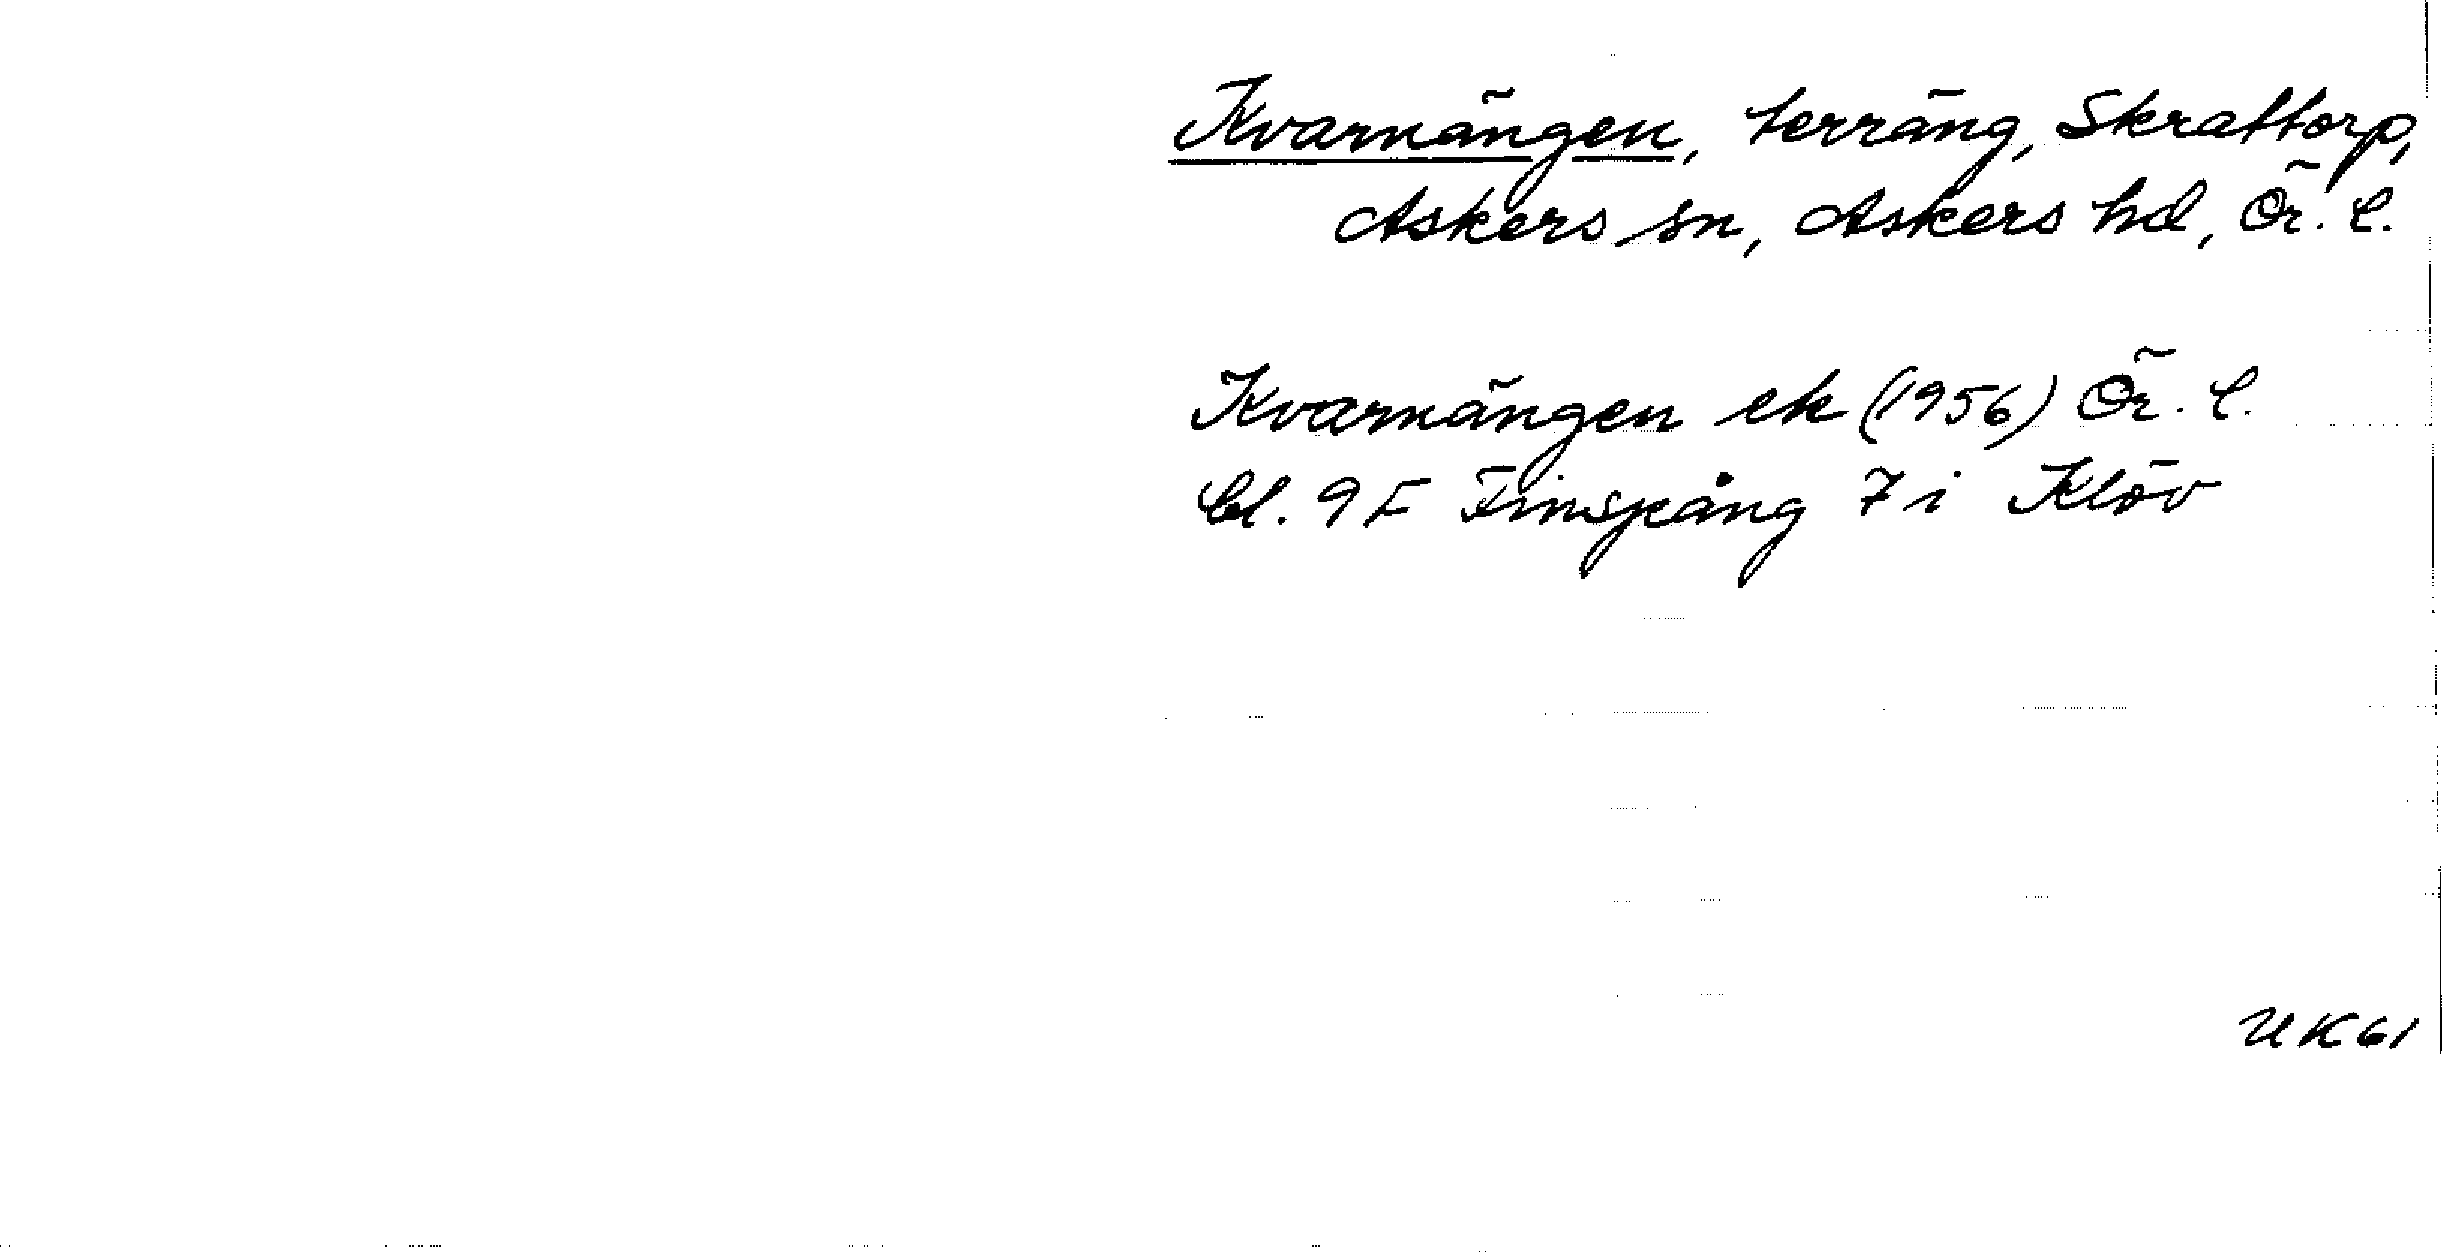 Kvarnängen, terräng, Skrattorp,
Askers sn, Askers hd, Ör. l.
Kvarnängen ek (1956) Ör. l.
bl. 9F Finspång 7 i Klöv
UK61